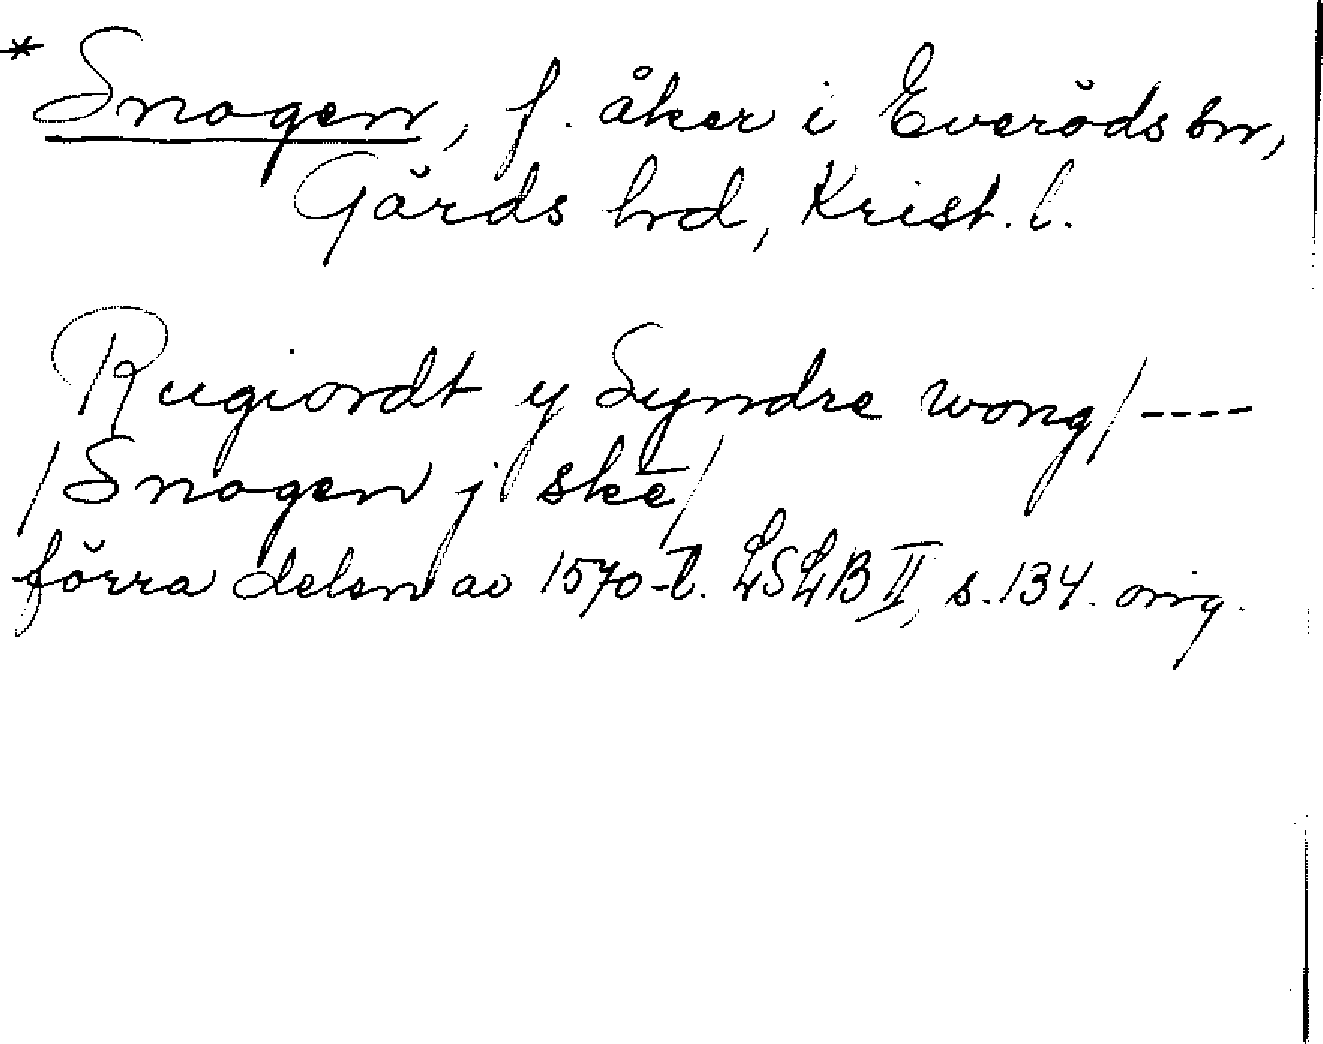 *Snogen, f. åker i Everöds sn,
Gärds hrd, Krist. l.
Rugiordt y Syndre wong/----
/Snogen j skē/
förra delen av 1570-t. LSLB II, s.134. orig.